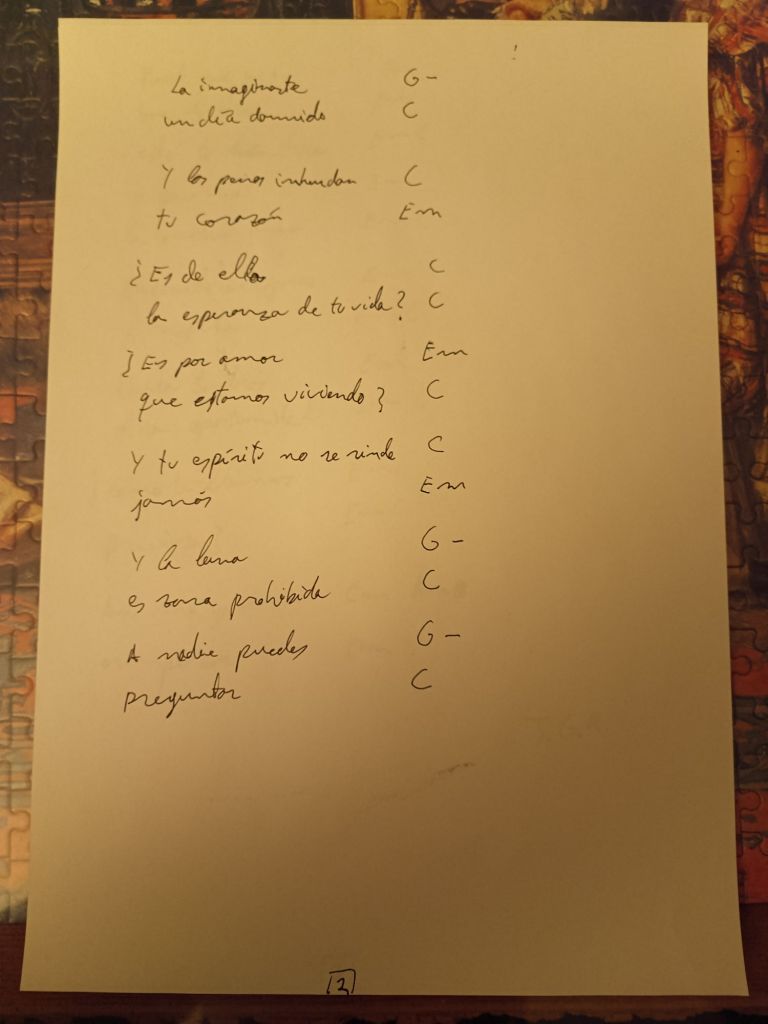 La imaginaste G-
un día dormido C
Y las penas inundan C
tu corazón Em
¿Es de ella C
la esperanza de tu vida? C
¿Es por amor Em
que estamos viviendo? C
Y tu espíritu no se rinde C
jamás Em
Y la luna G-
es zona prohibida C
A nadie puedes G-
preguntar C
2